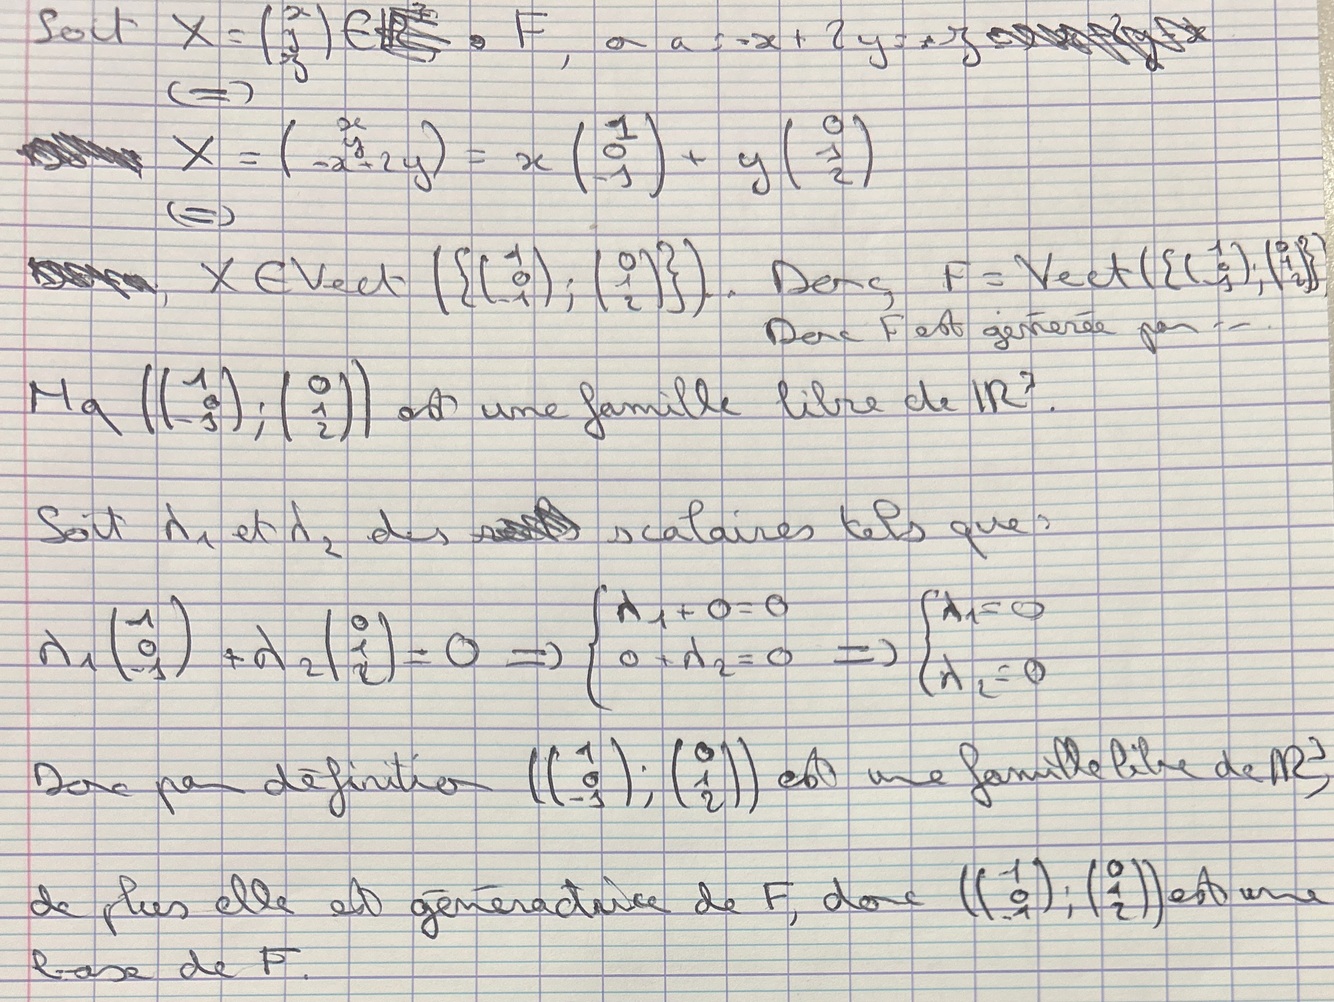 Soit X = (x y z) ∈ F, on a : -x + 2y = z
(=)
X = (x y -x+2y) = x (1 0 -1) + y (0 1 2)
(=)
X ∈ Vect ({(1 0 -1); (0 1 2)}). Donc, F = Vect ({(1 0 -1); (0 1 2)})
Donc F est générée par ---
Mq ((1 0 -1); (0 1 2)) est une famille libre de IR³.
Soit λ₁ et λ₂ des scalaires tels que :
λ₁ (1 0 -1) + λ₂ (0 1 2) = 0 => { λ₁ + 0 = 0 0 + λ₂ = 0 => { λ₁ = 0 λ₂ = 0
Donc par définition ((1 0 -1); (0 1 2)) est une famille libre de IR³,
de plus elle est génératrice de F, donc ((1 0 -1); (0 1 2)) est une
base de F.